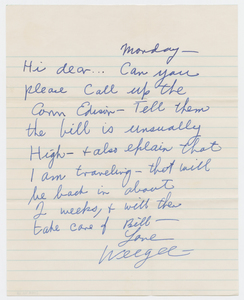 Monday—
Hi dear... Can you
please call up the
Conn Edison— Tell them
the bill is unsually
High— & also eplain that
I am traveling— & will
be back in about
2 weeks, & will then
take care of Bill—
Love
Weegee—